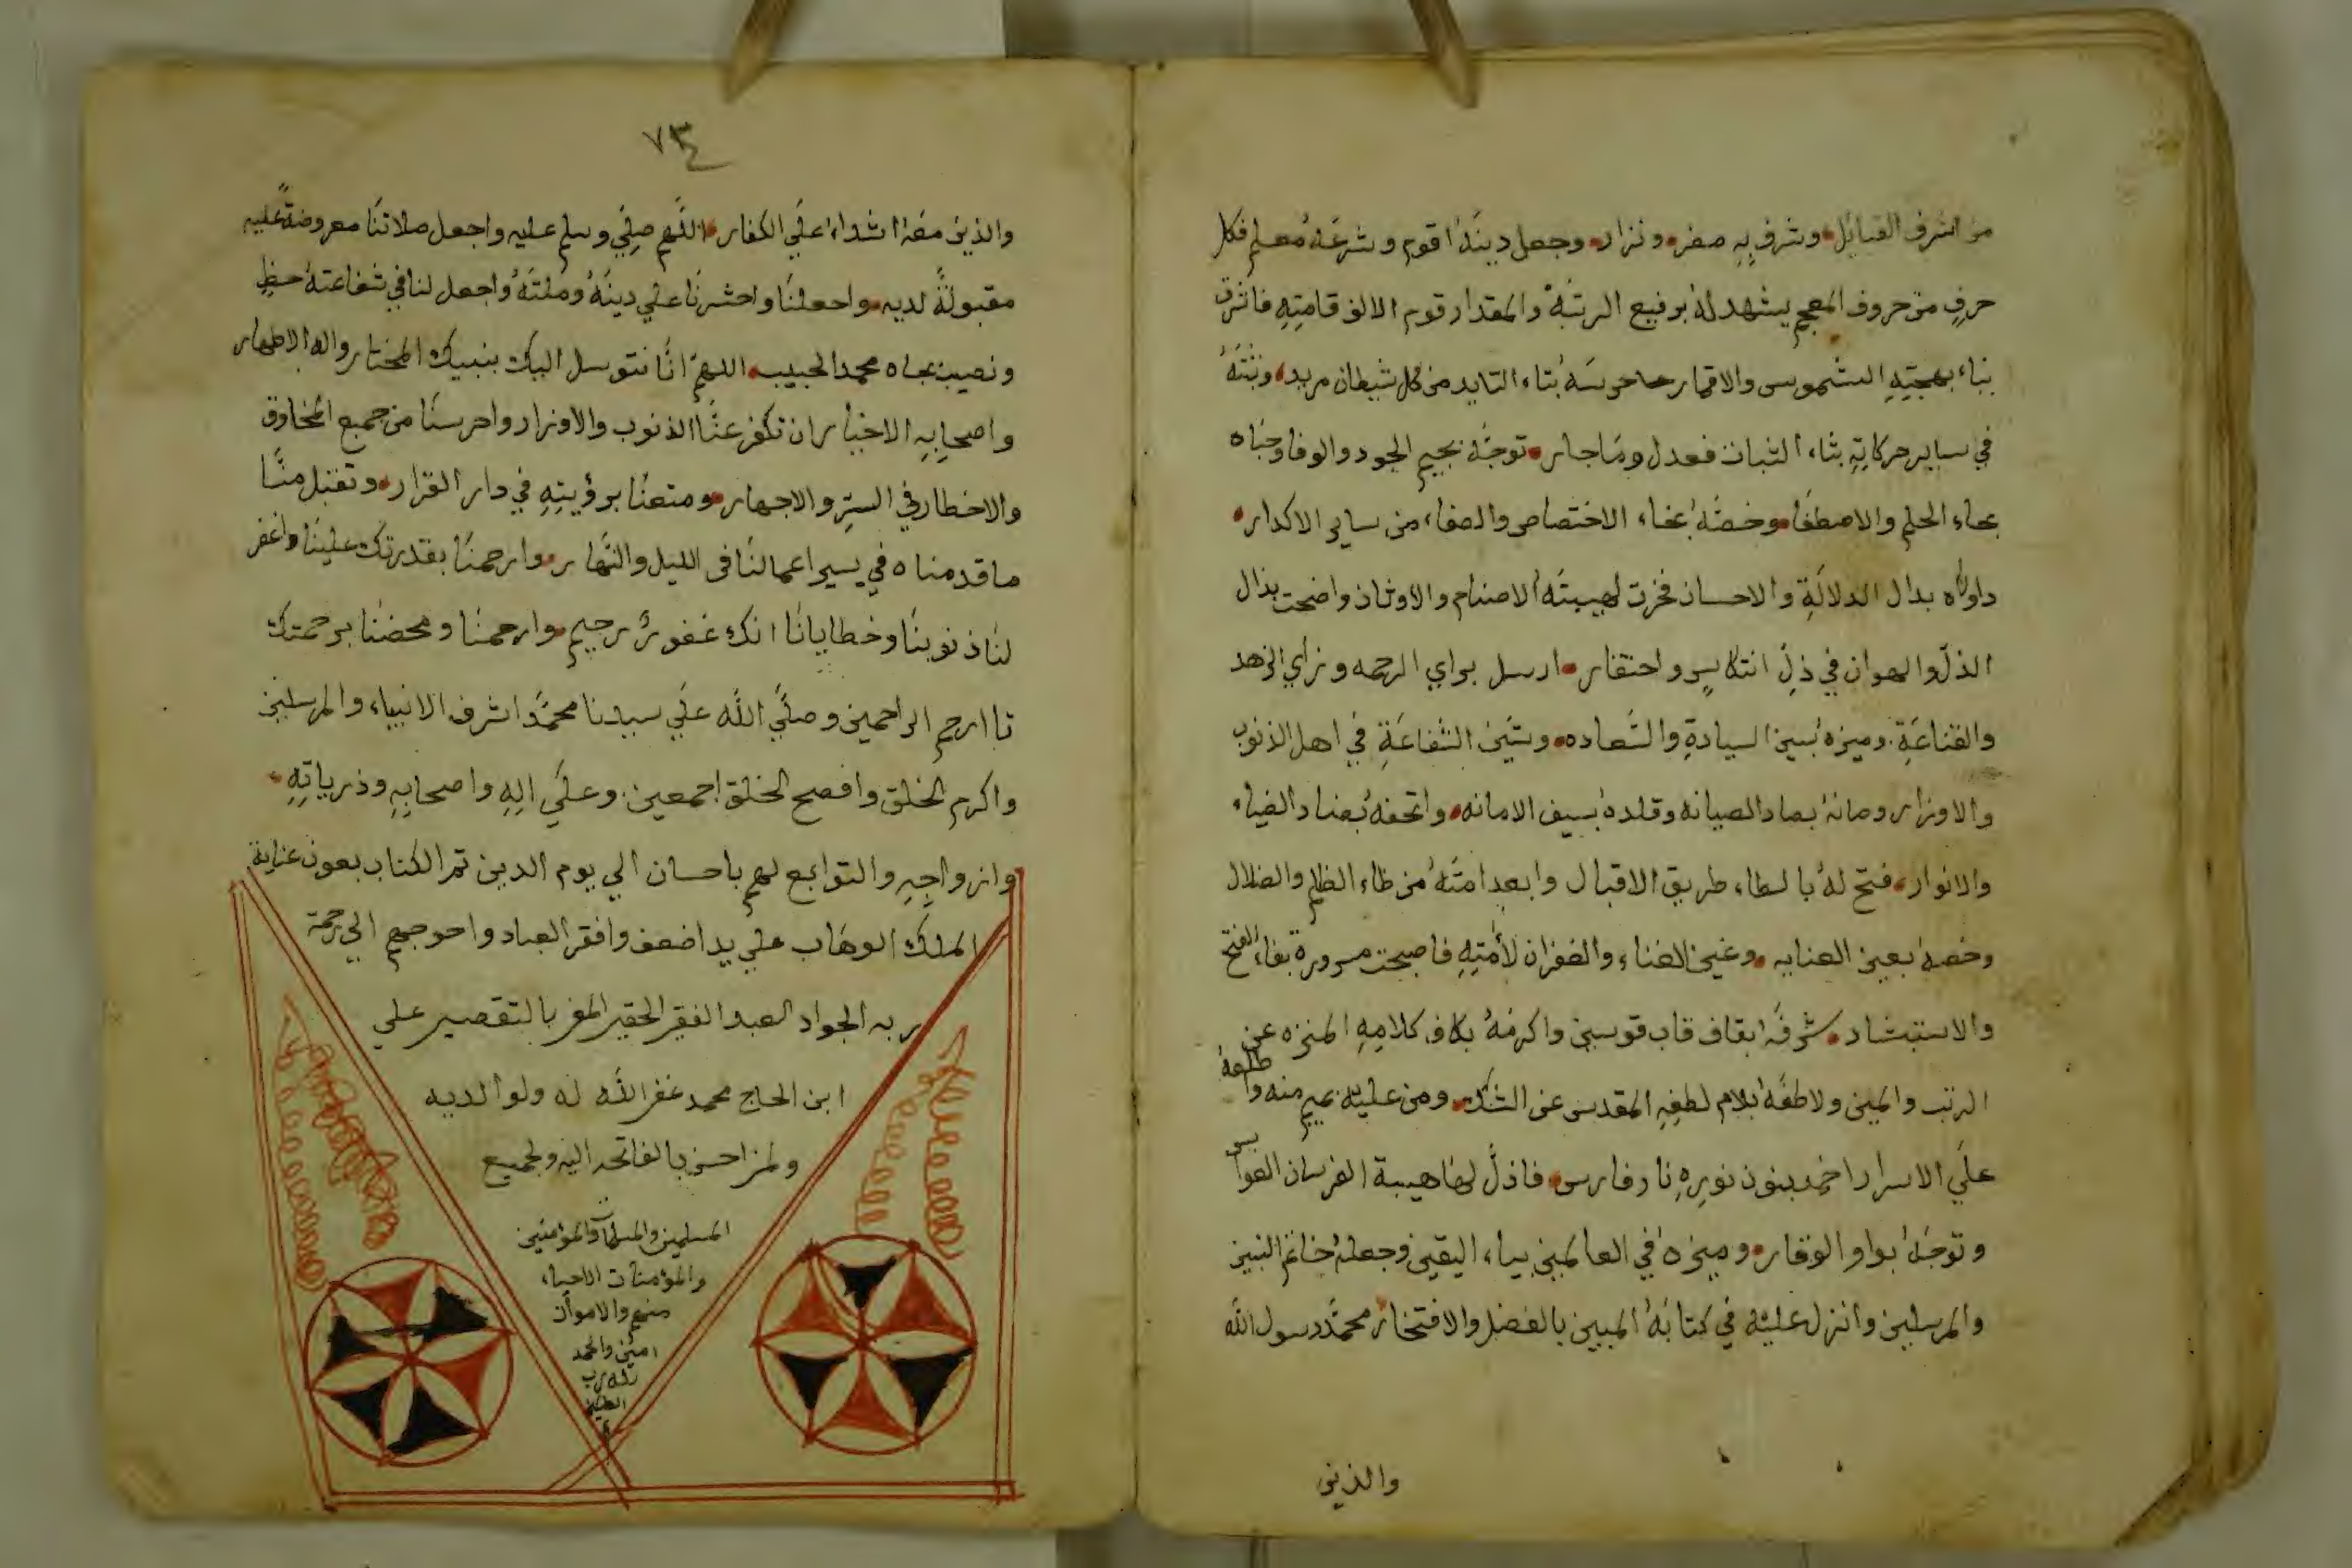 من اشرف القبائل وشرف به مضر ونزار وجعل دينه اقوم وشرعه معلم فكل
حرف من حروف المعجم يشهد له برفيع الرتبة والمقدار قوم الالف قامته فاشرق
بباء بهجته الشموس والاقمار حرسه بتاء التايد من كل شيطان مريد وثبته
في ساير حركاته بثاء الثبات فعدل وما جار توجه بجيم الجود والوفا وحباه
بحاء الحلم والاصطفا وخصه بخاء الاختصاص والصفاء من ساير الاكدار
بدال الدلالة والاحسان فخرت لهيبته الاصنام والاوثان واضحت بذال
الذل والهوان في ذل انتكاس واحتقار ارسل براي الرحمه وزاي الزهد
والقناعة وميزه بسين السيادة والسعاده وشين الشفاعة في اهل الذنوب
والاوزار وصانه بصاد الصيانه وقلده بسيف الامانه واتحفه بضاد الضياء
والانوار فتح له بالطاء طريق الاقبال وابعد امته من ظاء الظلم والضلال
وخصه بعين العنايه وغين الغناء والغفران لأمته فاصبحت مسرورة بفاء الفتح
والاستبشاد شرفه بقاف قاب قوسين واكرمه بكاف كلامه المنزه عن
الرتب والمين ولاطفه بلام لطفه المقدس عن الشك ومن عليه بميم منه واطلعه
علي الاسرار اخمد بنون نوره نار فارس فاذل لها هيبة الفرسان العوابس
وتوجه بواو الوقار وميزه في العالمين بياء اليقين وجعله خاتم النبين
والمرسلين وانزل عليه في كتابه المبين بالفضل والافتخار محمد رسول الله
والذين
٧٣
والذين معه اشداء علي الكفار اللهم صلي وسلم عليه واجعل صلاتنا معروضة عليه
مقبولة لديه واجعلنا واحشرنا علي دينه وملته واجعل لنا في شفاعته حظ
ونصيب بجاه محمد الحبيب اللهم انا نتوسل اليك بنبيك المختار واله الاطهار
واصحابه الاخيار ان تكفر عنا الذنوب والاوزار واحرسنا من جميع المخاوف
والاخطار في الستر والاجهار ومتعنا برؤيته في دار القرار وتقبل منا
ما قدمناه في يسير اعمالنا في الليل والنهار وارحمنا بقدرتك علينا واغفر
لنا ذنوبنا وخطايانا انك غفور رحيم وارحمنا ومحضنا برحمتك
يا ارحم الراحمين وصلي الله علي سيدنا محمد اشرف الانبياء والمرسلين
واكرم الخلق وافصح الخلق اجمعين وعلي اله واصحابه وذرياته
وازواجه والتوابع لهم باحسان الي يوم الدين تم الكتاب بعون عناية
الملك الوهاب علي يد اضعف وافقر العباد واحوجهم الي رحمة
ربه الجواد العبد الفقير الحقير المقر بالتقصير علي
ابن الحاج محمد غفر الله له ولوالديه
ولمن احسن بالفاتحه اليه ولجميع
المسلمين والمسلمات والمؤمنين
والمؤمنات الاحياء
منهم والاموات
امين والحمد
لله رب
العالمين